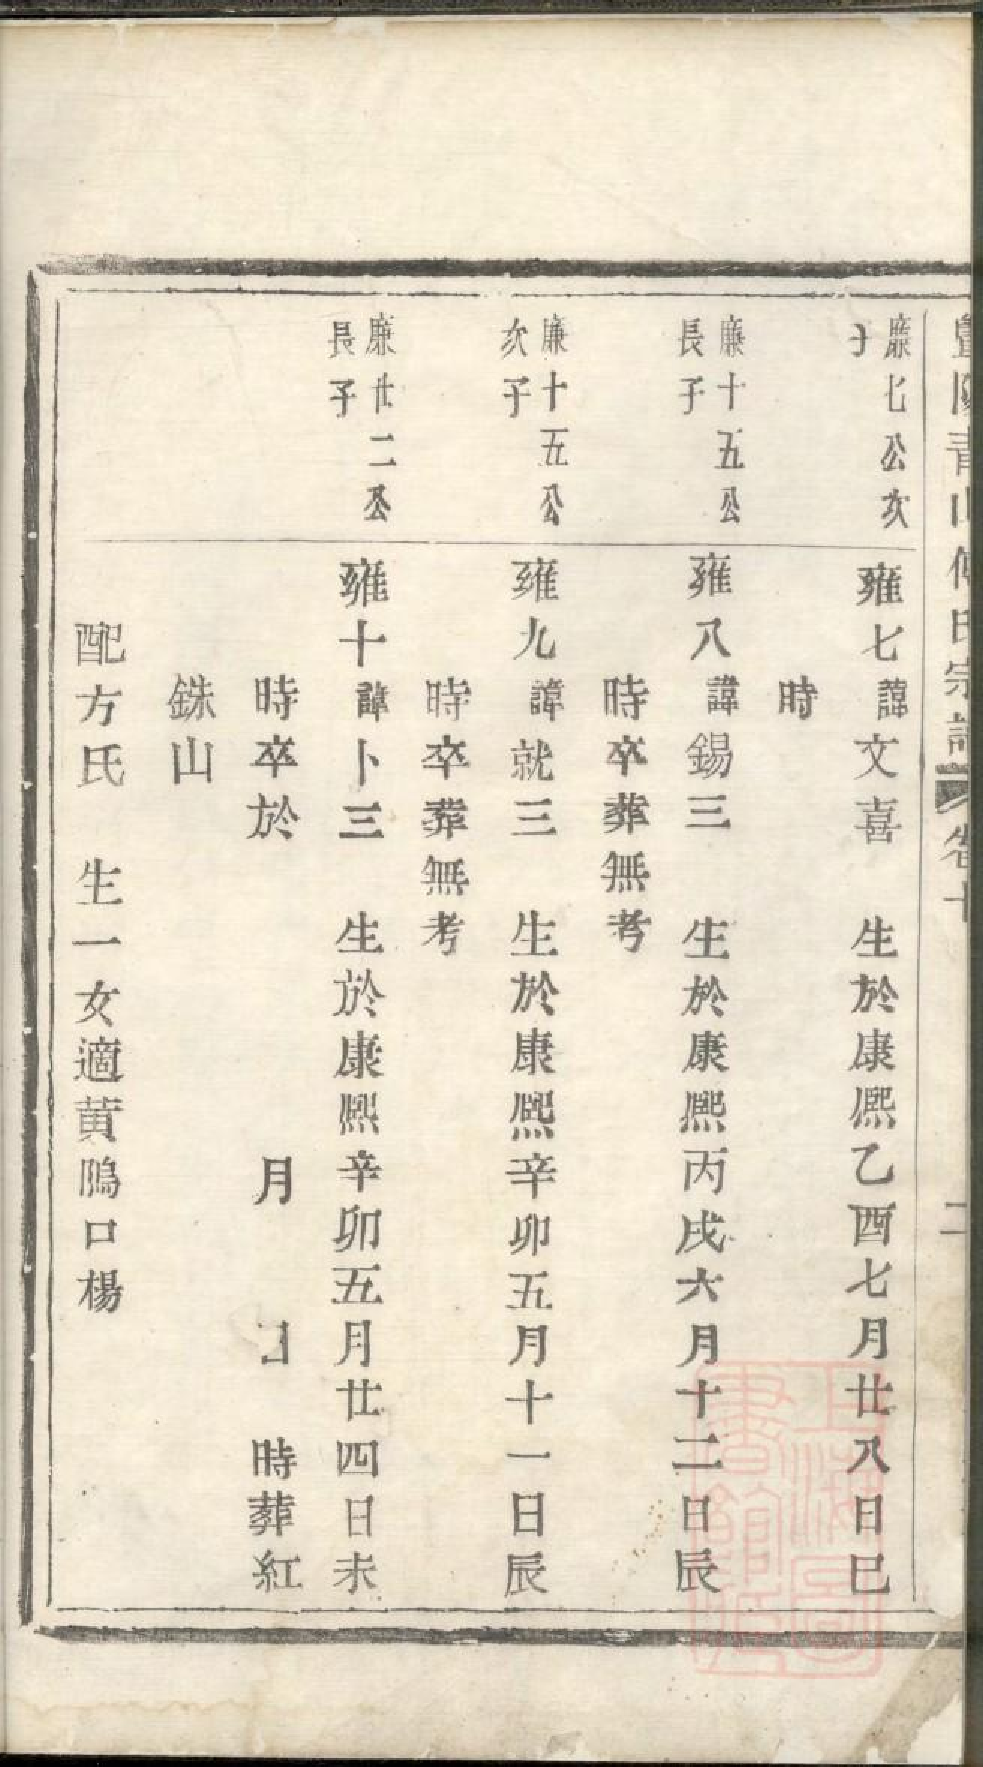 暨陽青山傅氏宗譜 卷十 二
廉七公次
子
雍七諱文喜 生於康熙乙酉七月廿八日巳
時
廉十五公
長子
雍八諱錫三 生於康熙丙戌六月十二日辰
時卒葬無考
廉十五公
次子
雍九諱就三 生於康熙辛卯五月十一日辰
時卒葬無考
廉廿二公
長子
雍十諱卜三 生於康熙辛卯五月廿四日未
時卒於 月 日 時葬紅
銖山
配方氏 生一女適黃鴋口楊
上海圖書館藏